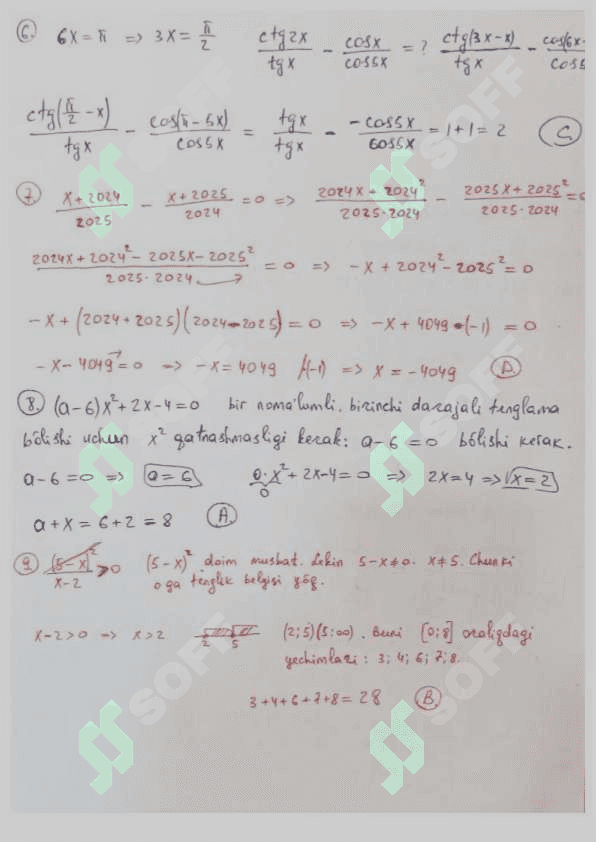 6. 6x=π ⇒ 3x=π/2 ctg2x/tgx - cosx/cos5x = ? ctg(3x-x)/tgx - cos(6x-
ctg(π/2-x)/tgx - cos(π-5x)/cos5x = tgx/tgx - -cos5x/cos5x = 1+1=2 C.
7. x+2024/2025 - x+2025/2024 = 0 ⇒ 2024x+2024²/2025·2024 - 2025x+2025²/2025·2024 =0
2024x+2024²-2025x-2025²/2025·2024 = 0 ⇒ -x+2024²-2025²=0
-x+(2024+2025)(2024-2025)=0 ⇒ -x+4049·(-1)=0
-x-4049=0 ⇒ -x=4049 /·(-1) ⇒ x=-4049 D.
8. (a-6)x²+2x-4=0 bir noma'lumli, birinchi darajali tenglama
bòlishi uchun x² qatnashmasligi kerak: a-6=0 bòlishi kerak.
a-6=0 ⇒ a=6 0·x²+2x-4=0 ⇒ 2x=4 ⇒ x=2
0
a+x=6+2=8 A.
9. (5-x)²/x-2 >0 (5-x)² doim musbat. Lekin 5-x≠0. x≠5. Chunki
0 ga tenglik belgisi yòq.
x-2>0 ⇒ x>2 2 5 (2;5)(5;∞). Buni [0;8] oraliqdagi
yechimlari: 3; 4; 6; 7; 8.
3+4+6+7+8=28 B.
SOFF
SOFF
SOFF
SOFF
SOFF
SOFF